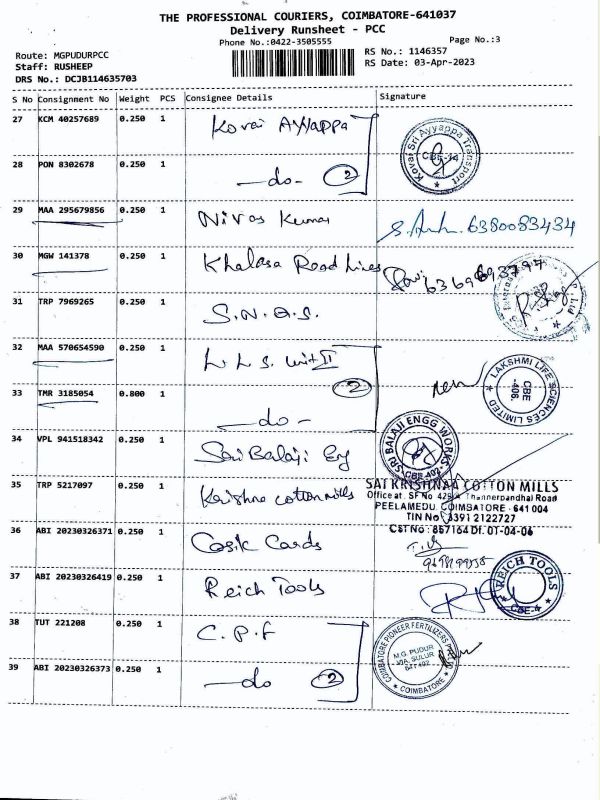 THE PROFESSIONAL COURIERS, COIMBATORE-641037
Delivery Runsheet - PCC
Phone No.:0422-3505555
Page No.:3
Route: MGPUDURPCC
Staff: RUSHEEP
DRS No.: DCJB114635703
RS No.: 1146357
RS Date: 03-Apr-2023
S No Consignment No Weight PCS Consignee Details Signature
27 KCM 40257689 0.250 1 Kovai Ayyappa
Kovai Sri Ayyappa Transport
28 PON 8302678 0.250 1 -do- 2
29 MAA 295679856 0.250 1 Nivas Kumar 6380083434
30 MGW 141378 0.250 1 Khalasa Road Lines
31 TRP 7969265 0.250 1 S.N.Q.S.
32 MAA 570654590 0.250 1 L L S. Unit II
2
LAKSHMI LIFE SCIENCES LIMITED
CBE -406.
33 TMR 3185054 0.800 1 -do-
34 VPL 941518342 0.250 1 Sri Balaji Eng
SRI BALAJI ENGG WORKS
CBE-402
35 TRP 5217097 0.250 1 Krishna cotton mills
SAI KRISHNAA COTTON MILLS
Office at. SF No 429/ Thannerpandhal Road
PEELAMEDU, COIMBATORE - 641 004
TIN No 33912122727
CST No: 857164 Dt. 01-04-06
36 ABI 20230326371 0.250 1 Cosik Cards
37 ABI 20230326419 0.250 1 Reich Tools
REICH TOOLS
CBE-4
38 TUT 221208 0.250 1 C.P.F
COIMBATORE PIONEER FERTILIZERS
M.G. PUDUR
VIA. SULUR
COIMBATORE
39 ABI 20230326373 0.250 1 -do 2